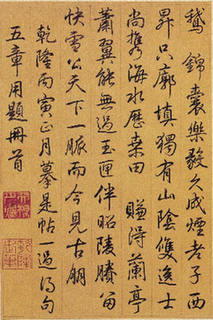 鵝 錦囊樂毅久成煙老子西
昇只廓填獨有山陰雙逸士
尚攜海水歷桑田 賺得蘭亭
蕭翼能無過玉匣伴昭陵賸留
快雪公天下一脈而今見古朋
乾隆丙寅正月摹是帖一過得句
五章用題冊首